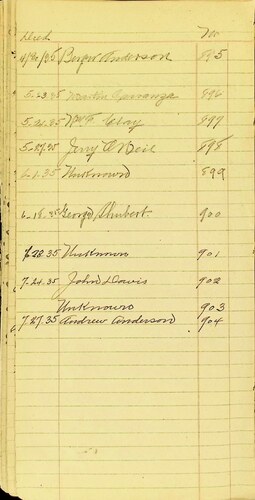 Died No
4/30/35 Berger Anderson 895
5-23.35 Martin Carranza 896
5.26.35 Wm F Clay 897
5.27.35 Jerry O'Neil 898
6.1.35 Unknown 899
6-18.35 George Shubert 900
7.20.35 Unknown 901
7.24.35 John L Davis 902
Unknown 903
7.27.35 Andrew Anderson 904